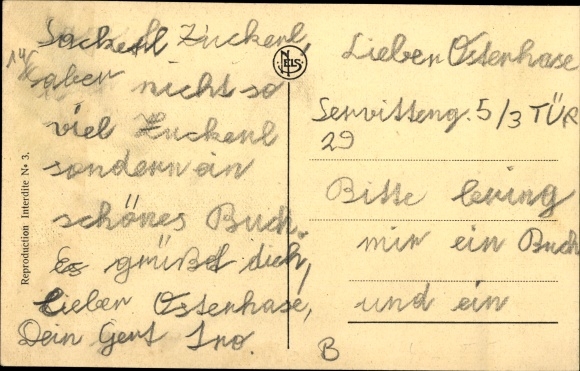 Lieber Osterhase
Servitteng. 5/3 TÜR
29
Bitte bring
mir ein Buch
und ein
Sackerl Zuckerl,
aber nicht so
viel Zuckerl
sondern ein
schönes Buch.
Es grüßt dich,
lieber Osterhase,
Dein Gert
B
NELS
Reproduction Interdite No 3.